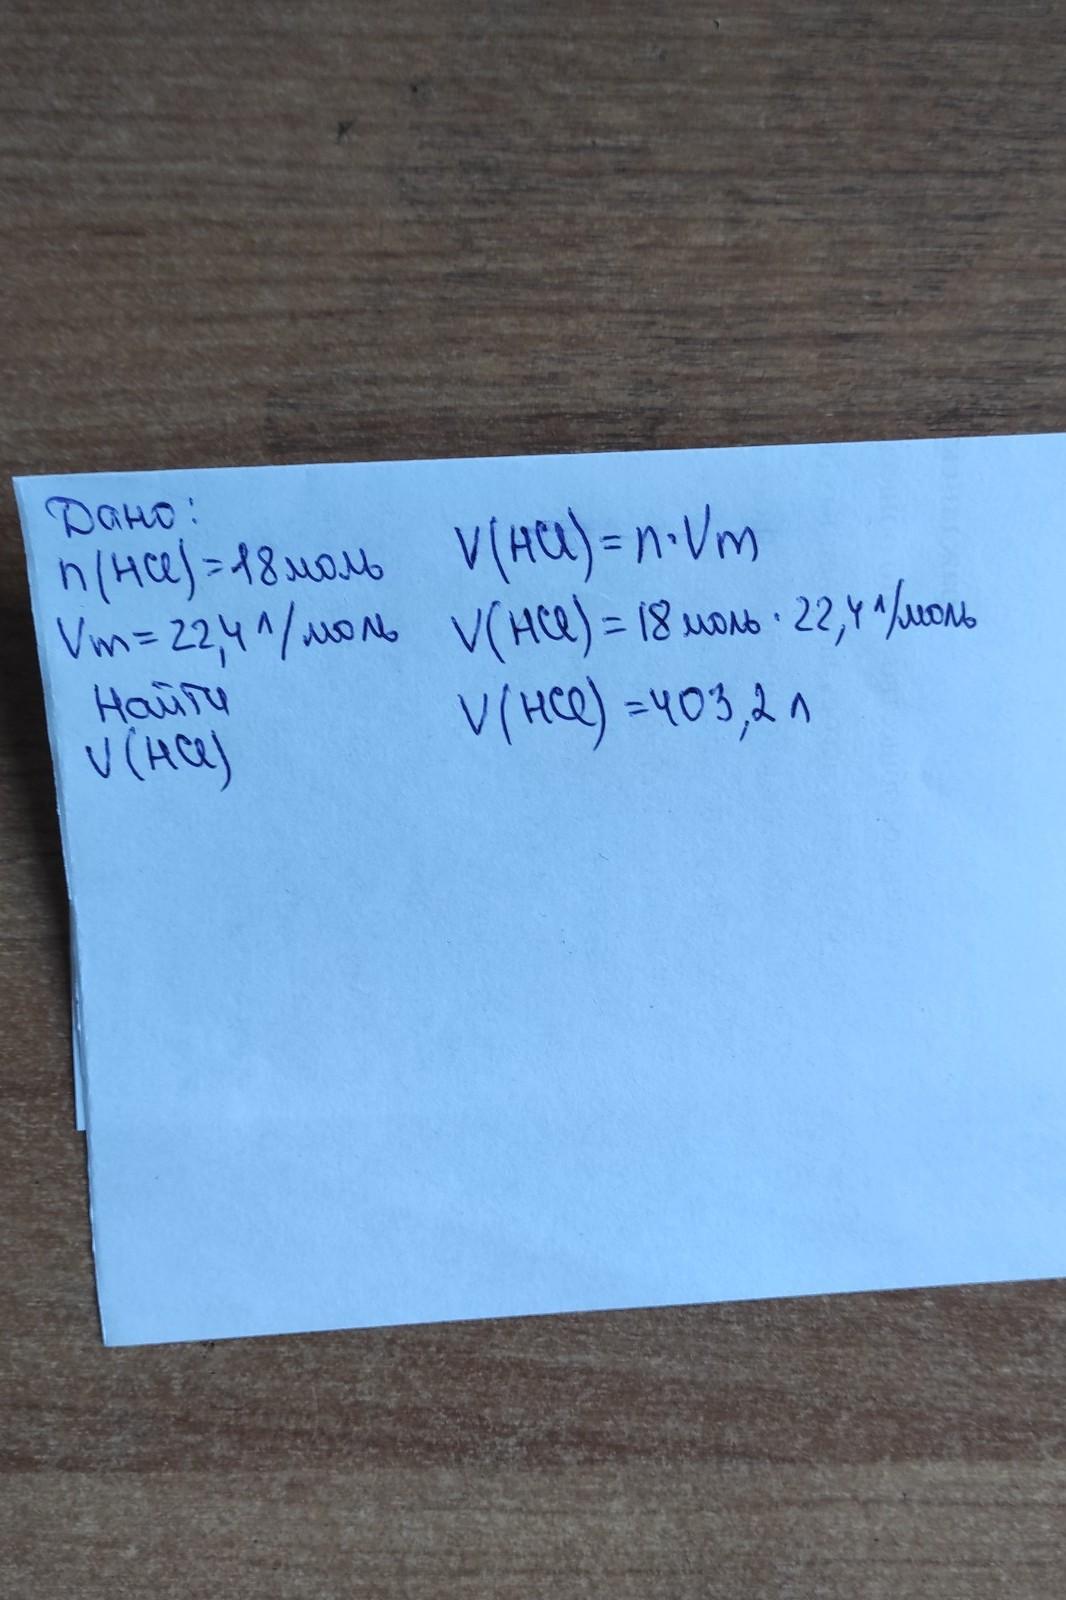 Дано:
n(HCl)=18моль
Vm=22,4л/моль
Найти
V(HCl)
V(HCl)=n·Vm
V(HCl)=18моль·22,4л/моль
V(HCl)=403,2л